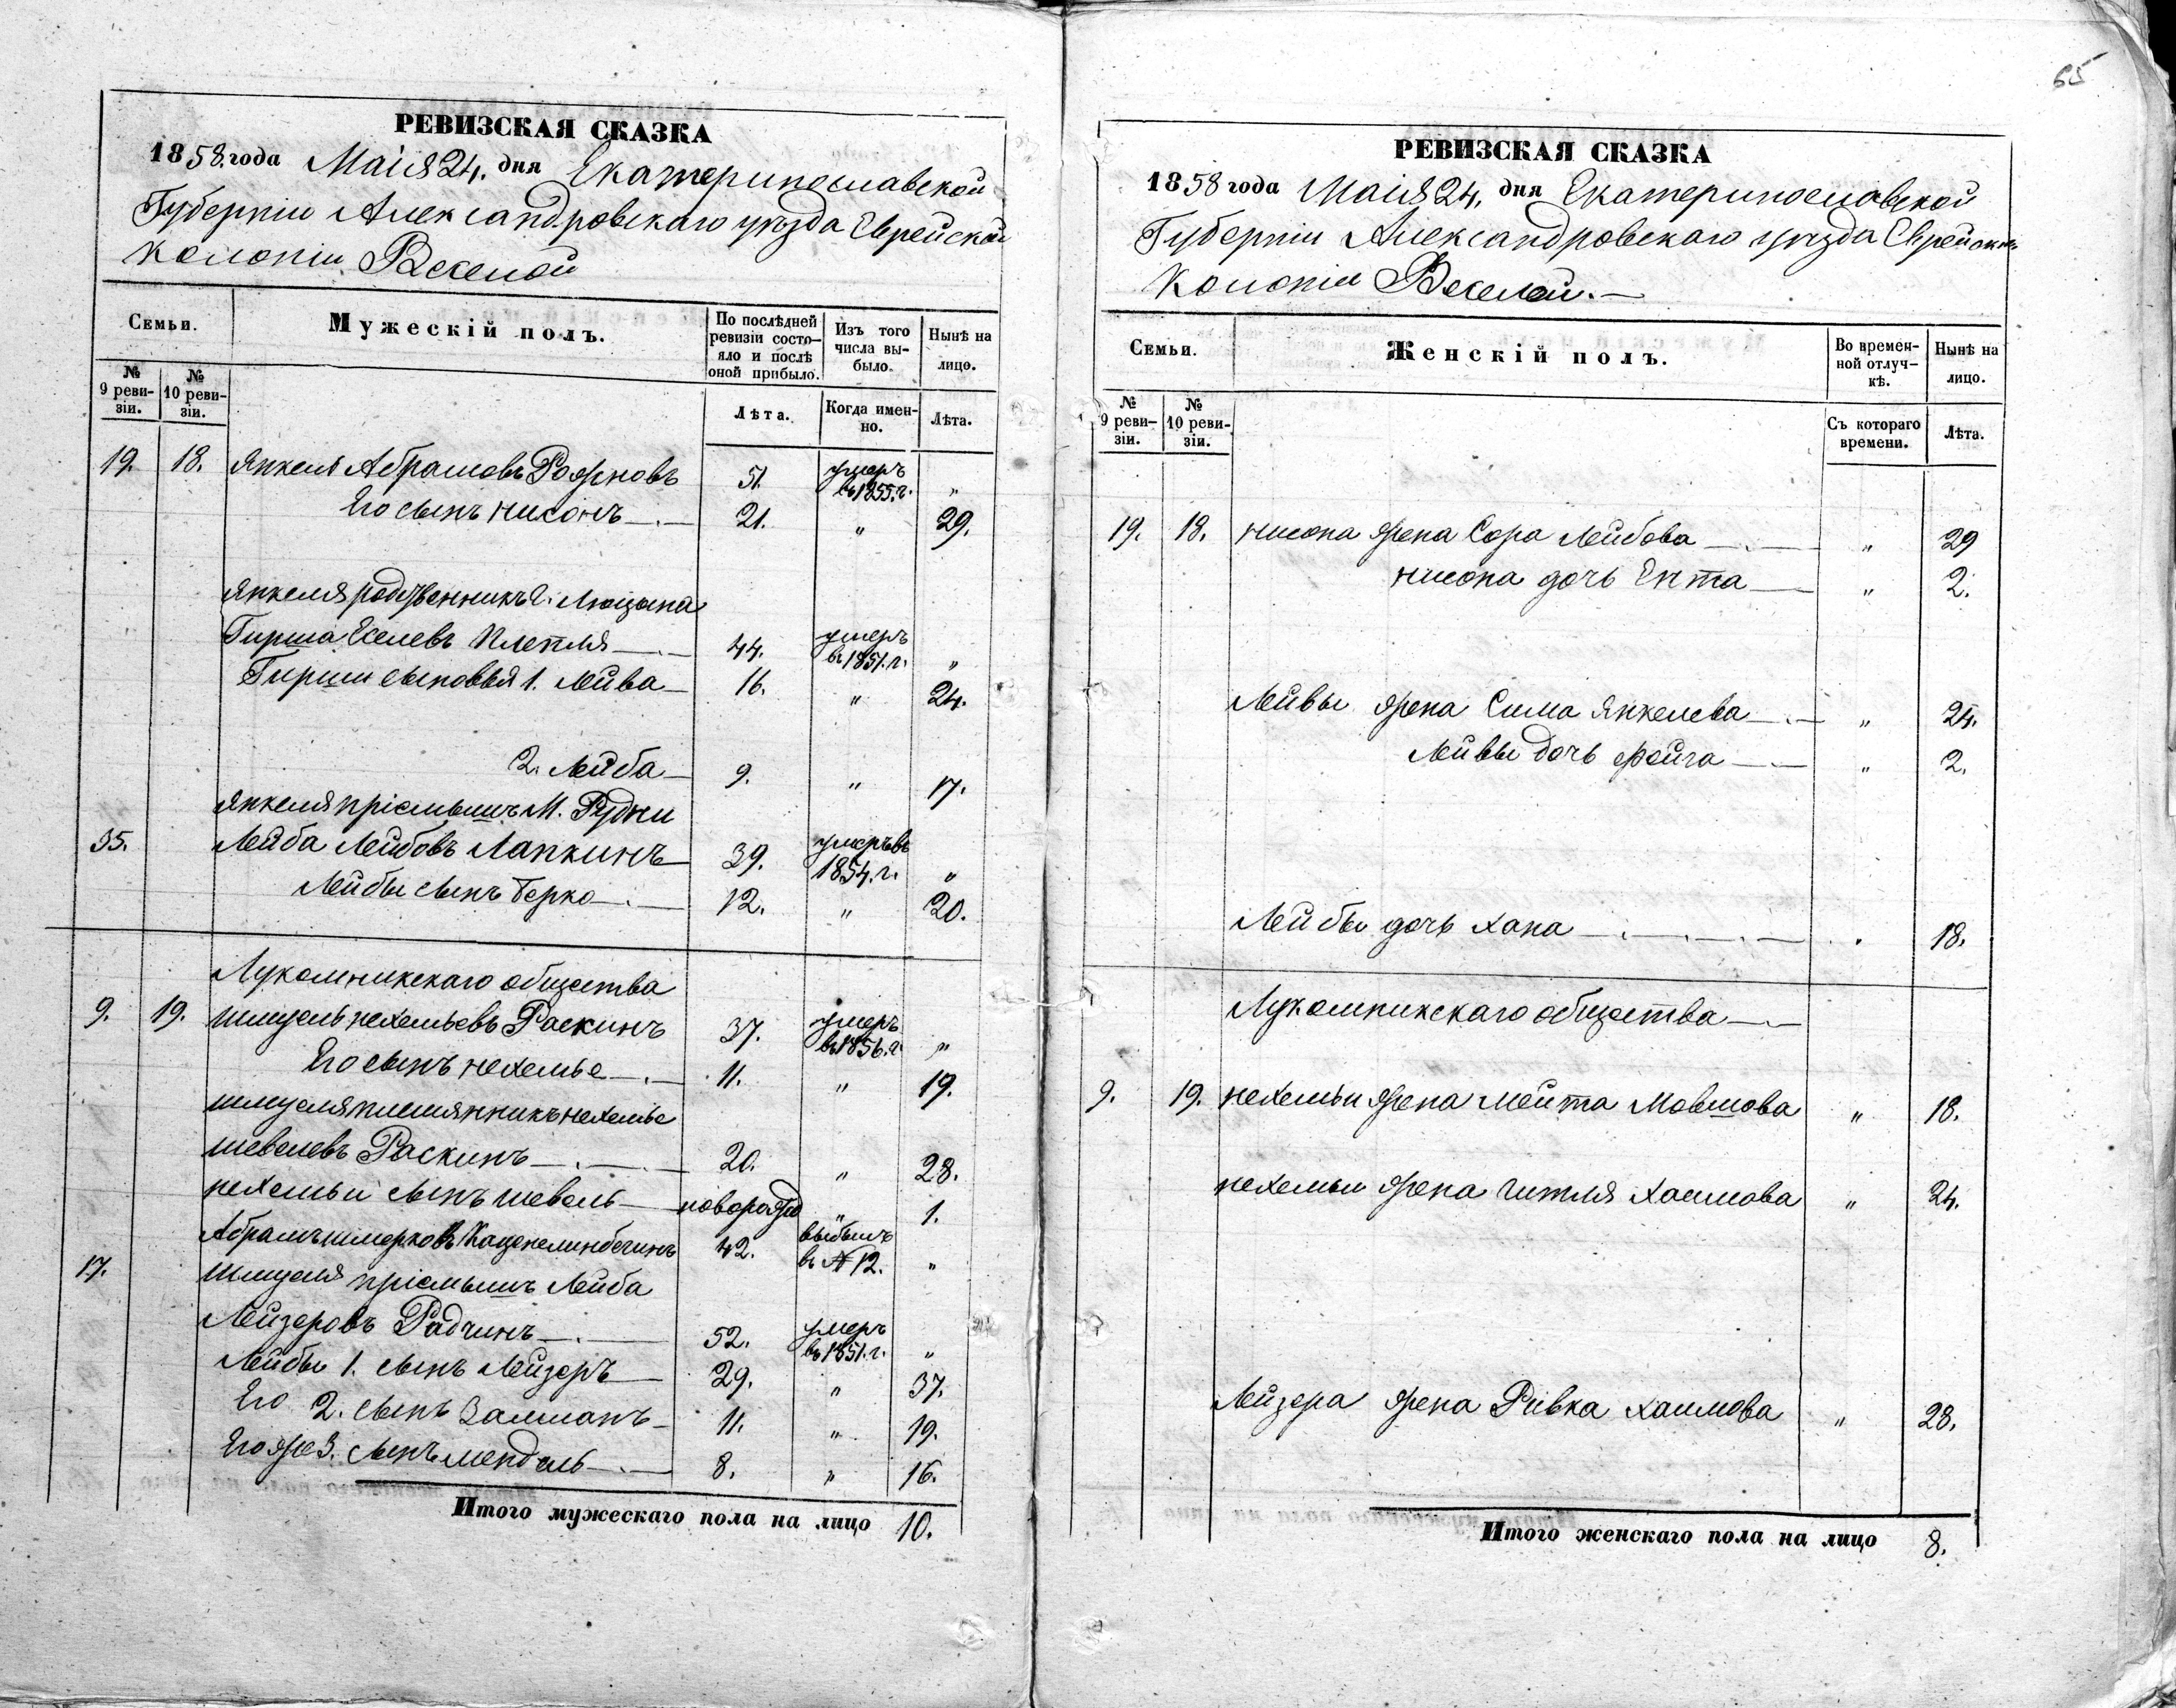 65
РЕВИЗСКАЯ СКАЗКА
1858. года Маія 24. дня Екатеринославской
Губерніи Александровскаго уѣзда Еврейской
Колоніи Веселой
Семьи.
Мужескій полъ.
По послѣдней ревизіи состояло и послѣ оной прибыло.
Изъ того числа выбыло.
Нынѣ на лицо.
№ 9 ревизіи.
№ 10 ревизіи.
Лѣта.
Когда именно.
Лѣта.
19. 18. Янкель Абрамовъ 51. умеръ въ 1855. г. „
Его сынъ Нисонъ 21. „ 29.
Янкеля родственникъ г. Люцына
Гирша Еселевъ Плетля 44. умеръ въ 1851. г. „
Гирши сыновья 1. Лейва 16. „ 24.
2. Лейба 9. „ 17.
Янкеля пріемышъ М. Рудни
35. Лейба Лейбовъ Лапкинъ 39. умеръ въ 1854. г. „
Лейбы сынъ Берко 12. „ 20.
Лукомникскаго общества
9. 19. Шмуель Нехемьевъ Раскинъ 37. умеръ въ 1856. г. „
Его сынъ Нехемье 11. „ 19.
Шмуеля племянникъ Нехемье
Шевелевъ Раскинъ 20. „ 28.
Нехемьи сынъ Шевель новорожд „ 1.
Абрамъ Шмерковъ 42. выбылъ въ № 12. „
17. Шмуеля пріемышъ Лейба
Лейзеровъ Радчинъ 52. умеръ въ 1851. г. „
Лейбы 1. сынъ Лейзеръ 29. „ 37.
Его 2. сынъ Залманъ 11. „ 19.
Его же 3. сынъ Мендель 8. „ 16.
Итого мужескаго пола на лицо 10.
РЕВИЗСКАЯ СКАЗКА
1858 года Маія 24. дня Екатеринославской
Губерніи Александровскаго уѣзда Еврейской
Колоніи Веселой.
Семьи.
Женскій полъ.
Во временной отлучкѣ.
Нынѣ на лицо.
№ 9 ревизіи.
№ 10 ревизіи.
Съ котораго времени.
Лѣта.
19. 18. Нисона жена Сора Лейбова „ 29
Нисона дочь Ента „ 2.
Лейвы жена Сима Янкелева „ 24.
Лейвы дочь Фейга „ 2.
Лейбы дочь Хана „ 18.
Лукомникскаго общества
9. 19. Нехемьи жена Мейта Мовшова „ 18.
Нехемьи жена Читля Хаимова „ 24.
Лейзера жена Ривка Хаимова „ 28.
Итого женскаго пола на лицо 8.